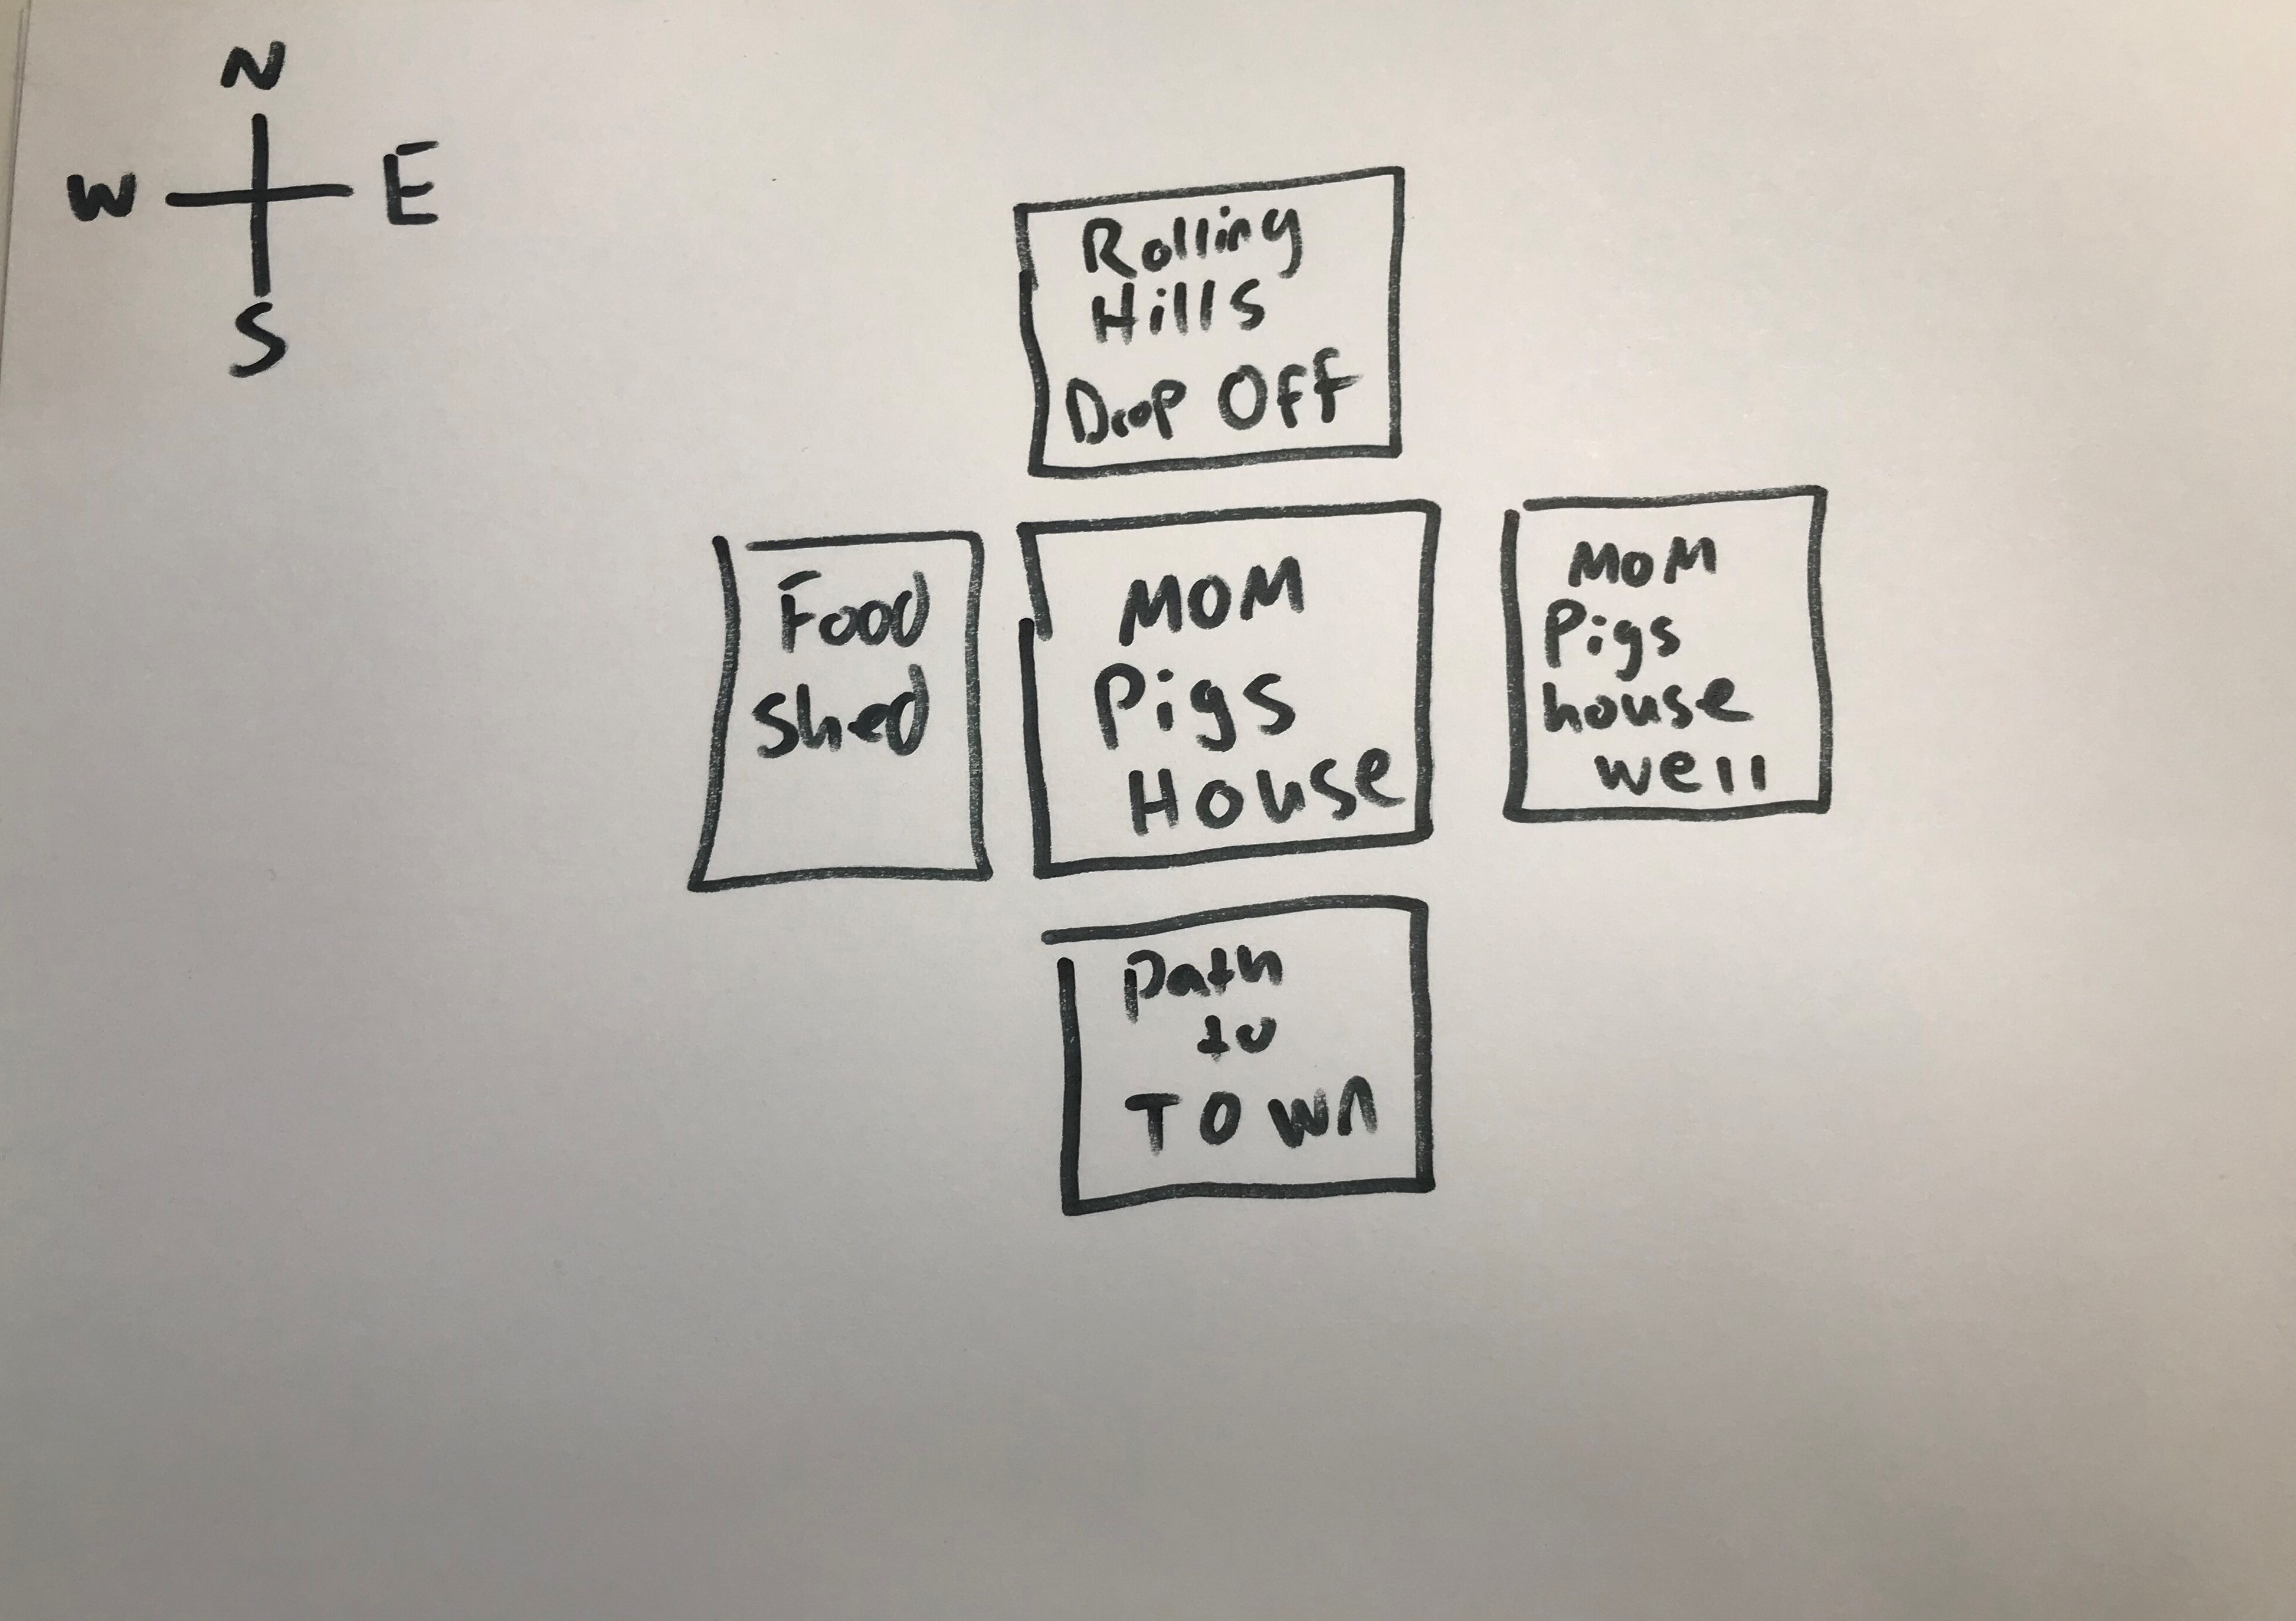 N
W E
S
Rolling
Hills
Drop Off
Food
Shed
MOM
Pigs
House
MOM
Pigs
house
well
Path
to
TOWN